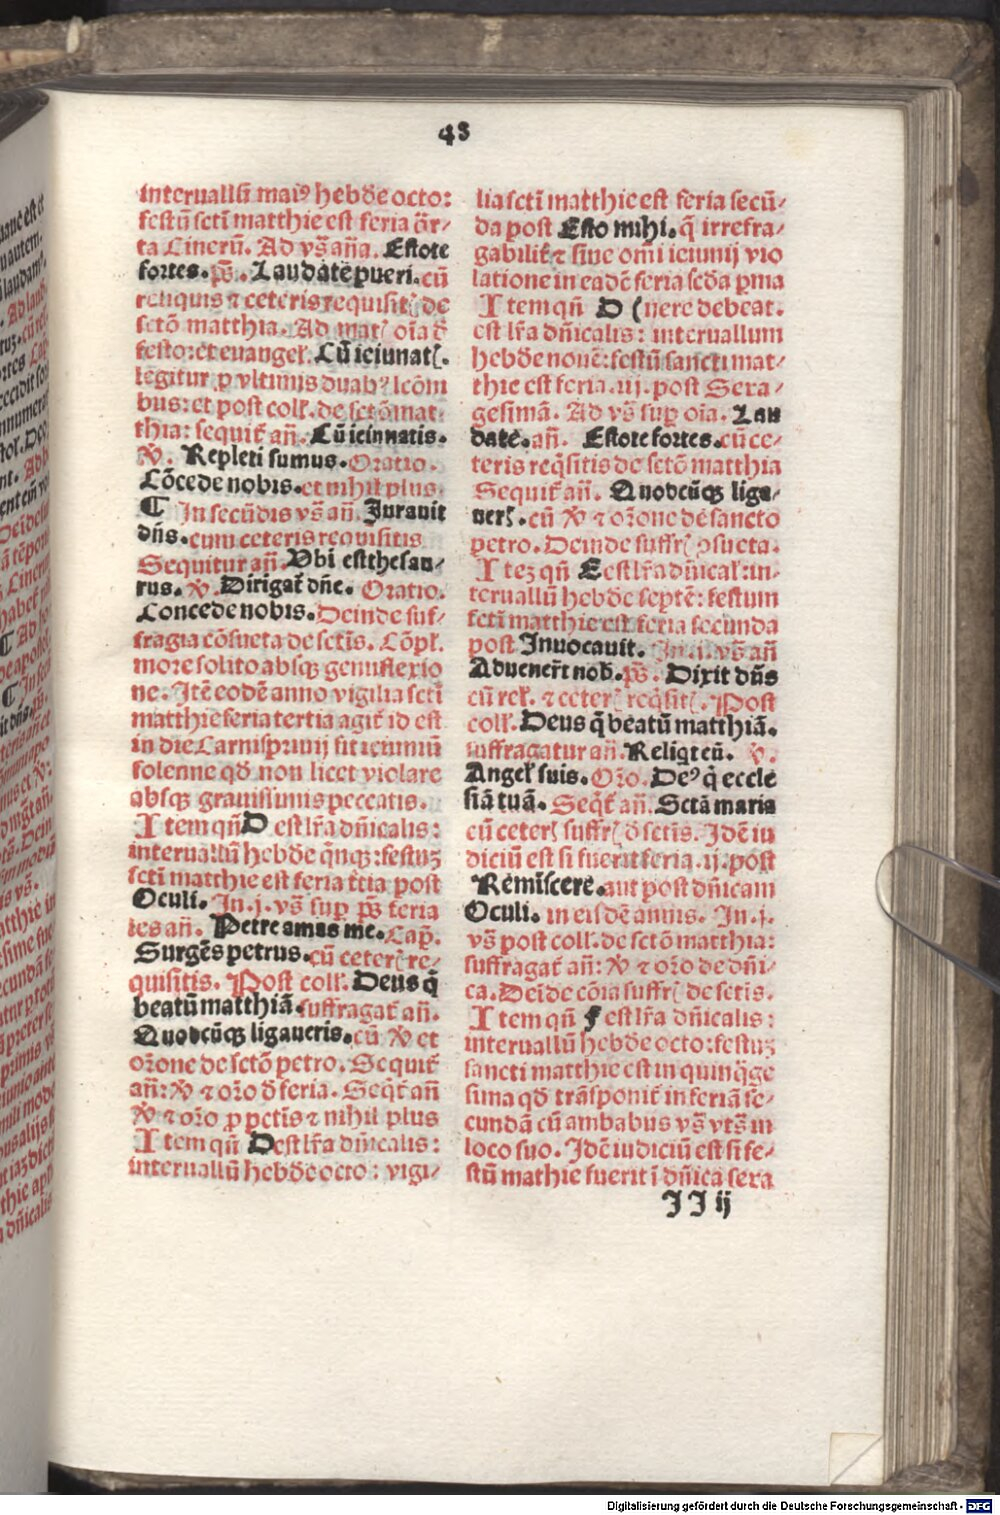 43
interuallū maiꝰ hebd̄e octo:
festū sctī matthie est feria q̄r⸗
ta Cinerū. Ad vs̄ an̄a. Estote
fortes. ps̄. Laudate pueri. cū
reliquis ⁊ ceteris requisit̄ de
sctō matthia. Ad mat̄ oīa d̄
festo: et euangeł. Cū ieiunat̄.
legitur ꝑ vltimis duabꝰ lcōni
bus: et post coll̄. de sctō mat⸗
thia: sequit̄ an̄. Cū ieiunatis.
℣. Repleti sumus. Oratio.
Cōcede nobis. et nihil plus.
¶ In secūdis vs̄ an̄. Jurauit
dn̄s. cum ceteris requisitis
Sequitur an̄. Vbi est thesau⸗
rus. ℣. Dirigat̄ dn̄e. Oratio.
Concede nobis. Deinde suf⸗
fragia cōsueta de sctīs. Cōpl̄.
more solito absqꝫ genuflexio
ne. Itē eodē anno vigilia sctī
matthie feria tertia agit̄ id est
in die Carnispriuij fit ieiuniū
solenne qd̄ non licet violare
absqꝫ grauissimis peccatis.
Item qn̄ D est lr̄a dn̄icalis:
interuallū hebd̄e qn̄qꝫ: festuꝫ
sctī matthie est feria t̄cia post
Oculi. In .j. vs̄ suꝑ ps̄ feria
les an̄. Petre amas me. Cap̄.
Surgēs petrus. cū ceter̄ re⸗
quisitis. Post coll̄. Deus q̄
beatū matthiā. suffragat̄ an̄.
Quodcūqꝫ ligaueris. cū ℣ et
orōne de sctō petro. Sequit̄
an̄: ℣ ⁊ orō d̄ feria. Seqt̄ an̄
℣ ⁊ orō ꝓ pctīs ⁊ nihil plus
Item qn̄ D est lr̄a dn̄icalis:
interuallū hebd̄e octo: vigi⸗
lia sctī matthie est feria secū⸗
da post Esto mihi. q̄ irrefra⸗
gabilit̄ ⁊ sine omī ieiunij vio
latione in eadē feria scd̄a ꝑma
Item qn̄ D
est lr̄a dn̄icalis: interuallum
hebd̄e nouē: festū sancti mat⸗
thie est feria .iij. post Sexa⸗
gesimā. Ad vs̄ suꝑ oīa. Lau
date. an̄. Estote fortes. cū ce⸗
teris reqͥsitis de sctō matthia
Sequit̄ an̄. Quodcūqꝫ liga⸗
uer̄. cū ℣ ⁊ orōne de sancto
petro. Deinde suffr̄ ꝯsueta.
Iteꝫ qn̄ E est lr̄a dn̄icał: in⸗
teruallū hebd̄e septē: festum
sctī matthie est feria secunda
post Inuocauit. In .i. vs̄ an̄
Aduener̄t nob̄. ps̄. Dixit dn̄s
cū reł. ⁊ ceter̄ reqͥsit̄. Post
coll̄. Deus q̄ beatū matthiā.
suffragatur an̄. Reliqͥt eū. ℣.
Angeł suis. Orō. Deꝰ q̄ eccle
siā tuā. Seqt̄ an̄. Sctā maria
cū ceter̄ suffr̄ d̄ sctīs. Idē iu
diciū est si fuerit feria .ij. post
Reminiscere. aut post dn̄icam
Oculi. in eisdē annis. In .j.
vs̄ post coll̄. de sctō matthia:
suffragat̄ an̄: ℣ ⁊ orō de dn̄i⸗
ca. Deīde cōia suffr̄ de sctīs.
Item qn̄ F est lr̄a dn̄icalis:
interuallū hebd̄e octo: festuꝫ
sancti matthie est in quinq̄ge
sima qd̄ trāsponit̄ in feriā se⸗
cundā cū ambabus vs̄ vts̄ in
loco suo. Idē iudiciū est si fe⸗
stū mathie fuerit ī dn̄ica sexa
IIij
Digitalisierung gefördert durch die Deutsche Forschungsgemeinschaft - DFG